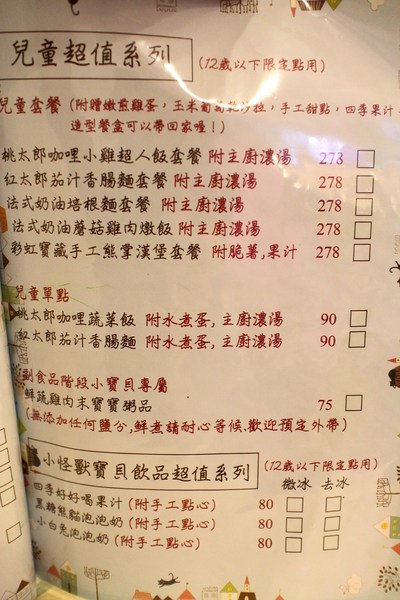 兒童超值系列 (12歲以下限定點用)
兒童套餐 (附贈嫩煎雞蛋，玉米葡萄乾沙拉，手工甜點，四季果汁
造型餐盒可以帶回家喔！)
桃太郎咖哩小雞超人飯套餐 附主廚濃湯 278
紅太郎茄汁香腸麵套餐 附主廚濃湯 278
法式奶油培根麵套餐 附主廚濃湯 278
法式奶油蘑菇雞肉燉飯 附主廚濃湯 278
彩虹寶藏手工熊掌漢堡套餐 附脆薯,果汁 278
兒童單點
桃太郎咖哩蔬菜飯 附水煮蛋,主廚濃湯 90
紅太郎茄汁香腸麵 附水煮蛋,主廚濃湯 90
副食品階段小寶貝專屬
鮮蔬雞肉末寶寶粥品 75
(無添加任何鹽分,鮮煮請耐心等候.歡迎預定外帶)
小怪獸寶貝飲品超值系列 (12歲以下限定點用)
微冰 去冰
四季好好喝果汁(附手工點心) 80
黑糖熊貓泡泡奶(附手工點心) 80
小白兔泡泡奶(附手工點心) 80